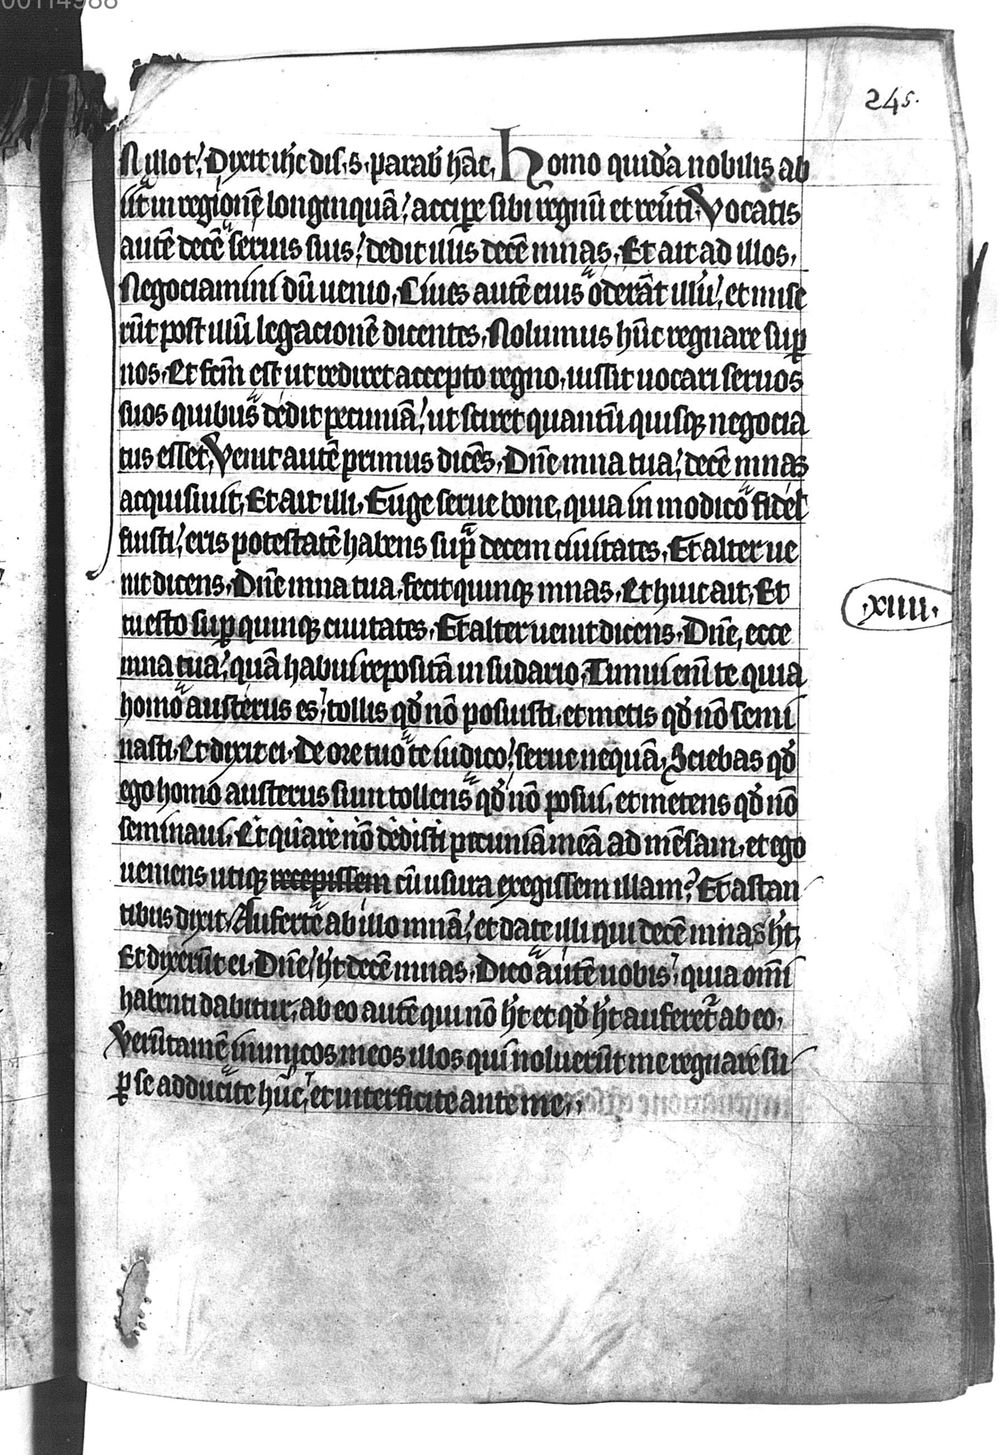 00114988
245.
In illo t̄. Dixit ih̄c dis. s. parab̄ hāc. Homo quidā nobilis ab
iit in regionē longinquā. accipe sibi regnū et reūti. Vocatis
autē decē seruis suis. dedit illis decē mnas. Et ait ad illos.
Negociamini dū uenio. Ciues autē eius oderāt illū. et mise
rūt post illū legacionē dicentes. Nolumus hūc regnare sup
nos. Et fcm̄ est ut rediret accepto regno. iussit uocari seruos
suos quibus dedit pecuniā. ut sciret quantū quisq negocia
tus esset. Venit autē primus dicēs. Dn̄e mna tua. decē mnas
acquisiuit. Et ait illi. Euge serue bone. quia in modico fidel
fuisti. eris potestatē habens sup decem ciuitates. Et alter ue
nit dicens. Dn̄e mna tua. fecit quinq mnas. Et huic ait. Et
xiiii.
tu esto sup quinq ciuitates. Et alter uenit dicens. Dn̄e, ecce
mna tua. quā habui repositā in sudario. Timui enī te quia
homo austerus es. tollis qd̄ nō posuisti. et metis qd̄ nō semi
nasti. Et dixit ei. De ore tuo te iudico. serue nequā. Sciebas qd̄
ego homo austerus sum tollens qd̄ nō posui. et metens qd̄ nō
seminaui. Et quare nō dedisti pecuniā meā ad mēsam. et ego
ueniens utiq recepissem cū usura exegissem illam. Et astan
tibus dixit. Auferte ab illo mnā. et date illi qui decē mnas h̄t.
Et dixerūt ei. Dn̄e. h̄t decē mnas. Dico autē uobis. quia omī
habenti dabitur. ab eo autē qui nō h̄t et qd̄ h̄t auferet̄ ab eo.
Verūtamē inimicos meos illos qui noluerūt me regnare su
p se adducite hūc. et interficite ante me.